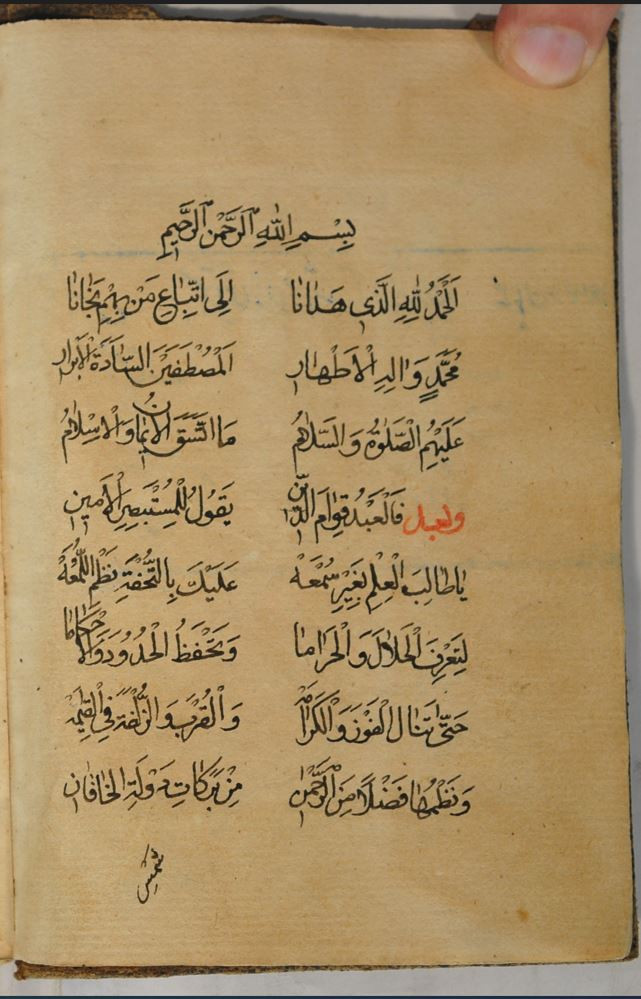 بِسْمِ اللّٰهِ الرَّحْمٰنِ الرَّحِيمِ
اَلْحَمْدُ لِلّٰهِ الَّذِي هَدَانَا اِلَى اتِّبَاعِ مَنْ بِهِمْ نَجَانَا
مُحَمَّدٍ وَالِدِ الْاَطْهَارِ الْمُصْطَفَيْنَ السَّادَةِ الْاَبْرَارِ
عَلَيْهِمُ الصَّلٰوةُ وَالسَّلَامُ مَا اتَّسَقَ الْاِيمَانُ وَالْاِسْلَامُ
وبعد فَالْعَبْدُ قِوَامُ الدِّينِ يَقُولُ لِلْمُسْتَبْصِرِ الْاَمِينِ
يَا طَالِبَ الْعِلْمِ بِغَيْرِ سُمْعَهْ عَلَيْكَ بِالتُّحْفَةِ نَظْمِ اللُّمْعَهْ
لِتَعْرِفَ الْحَلَالَ وَالْحَرَامَا وَتَحْفَظَ الْحُدُودَ وَالْاَحْكَامَا
حَتّٰى تَنَالَ الْفَوْزَ وَالْكَرَامَهْ وَالْقُرْبَ وَالزُّلْفَةَ فِي الْقِيٰمَهْ
وَنَظْمُهَا فَضْلًا مِنَ الرَّحْمٰنِ مِنْ بَرَكَاتِ دَوْلَةِ الْخَاقَانِ